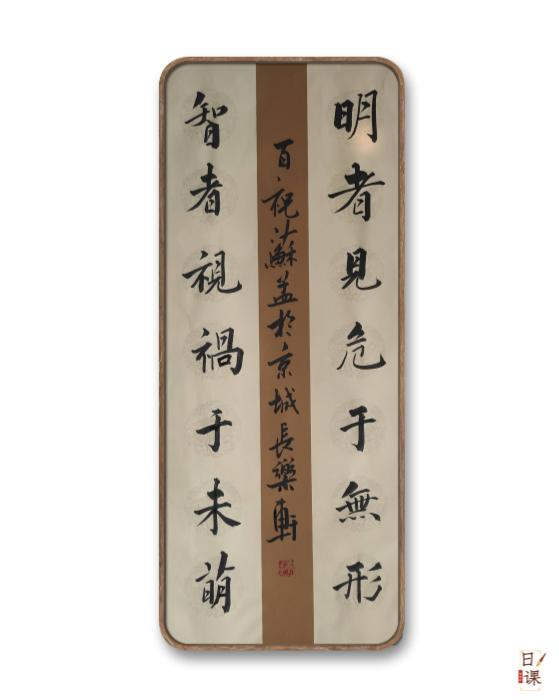 明者見危于無形
百祝蘇孟於京城長樂軒
智者視禍于未萌
日课